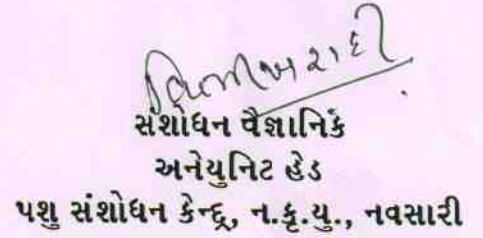 સંશોધન વૈજ્ઞાનિક
અનેયુનિટ હેડ
પશુ સંશોધન કેન્દ્ર, ન.કૃ.યુ., નવસારી